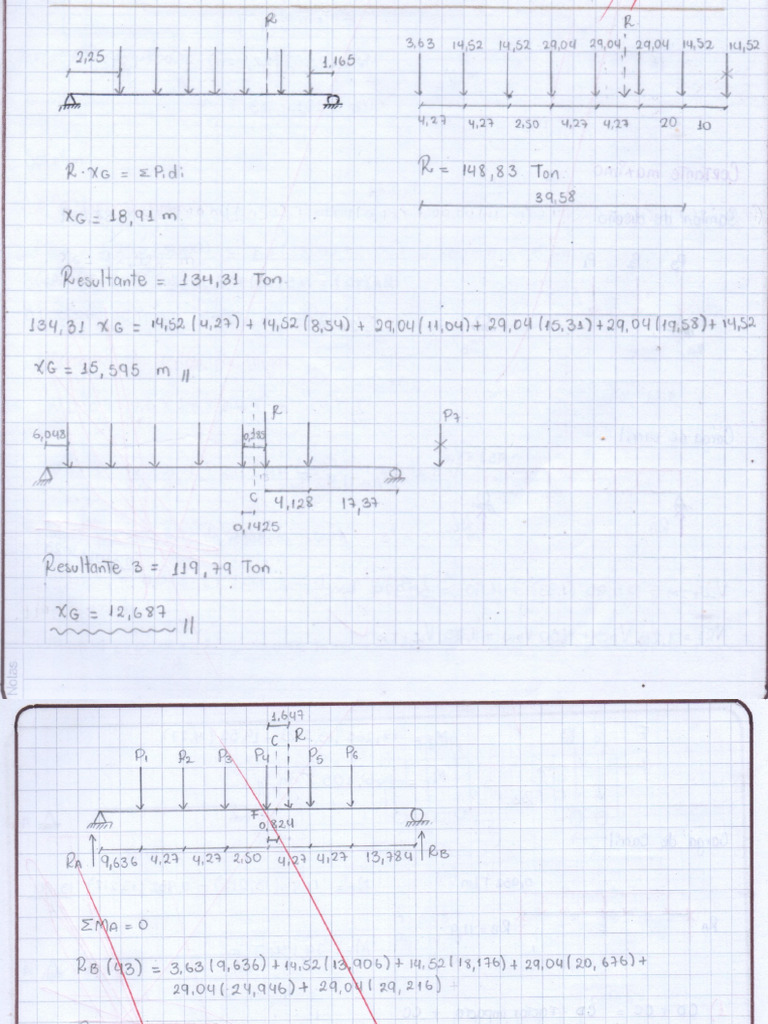 R
2,25
1,165
R
3,63 14,52 14,52 29,04 29,04 29,04 14,52 14,52
4,27 4,27 2,50 4,27 4,27 20 10
R · xG = Σ Pi di
R = 148,83 Ton
39,58
xG = 18,91 m
Resultante = 134,31 Ton
134,31 xG = 14,52 (4,27) + 14,52 (8,54) + 29,04 (11,04) + 29,04 (15,31) + 29,04 (19,58) + 14,52
xG = 15,595 m //
6,048
R
P7
C
4,128 17,37
0,1425
Resultante 3 = 119,79 Ton
xG = 12,687 //
Notas
1,647
C R
P1 P2 P3 P4 P5 P6
F
0,824
RA 9,636 4,27 4,27 2,50 4,27 4,27 13,784 RB
ΣMA = 0
RB (43) = 3,63 (9,636) + 14,52 (13,906) + 14,52 (18,176) + 29,04 (20,676) +
29,04 (24,946) + 29,04 (29,216) +